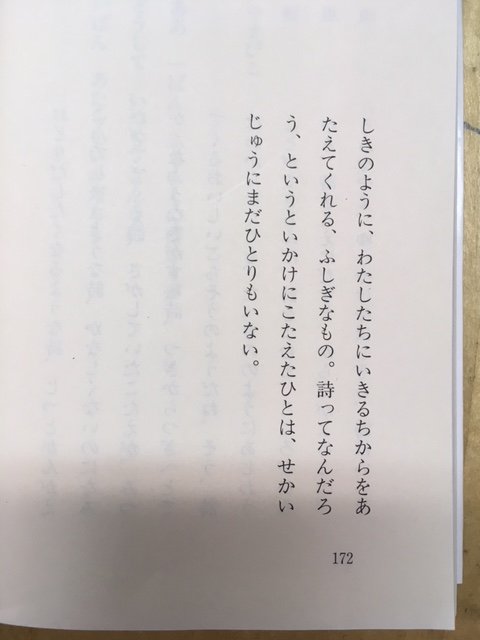 しきのように、わたしたちにいきるちからをあ
たえてくれる、ふしぎなもの。詩ってなんだろ
う、というといかけにこたえたひとは、せかい
じゅうにまだひとりもいない。
172